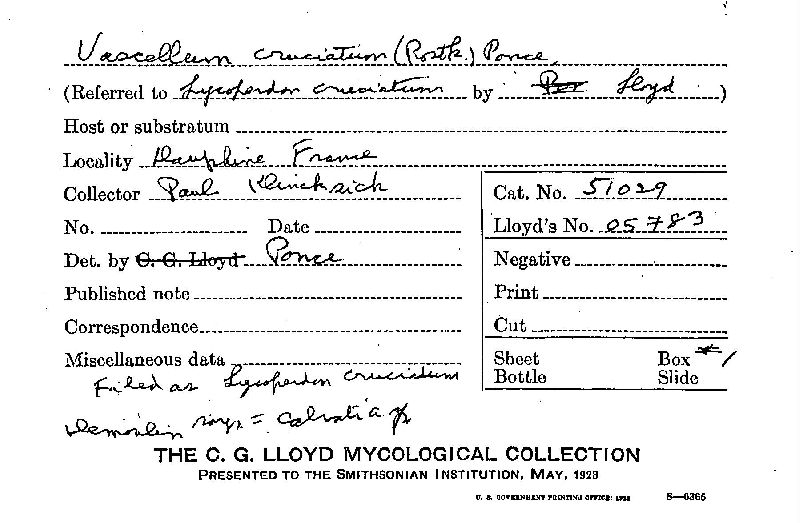 Vascellum cruciatum (Rostk.) Ponce
(Referred to Lycoperdon cruciatum by Lloyd)
Host or substratum
Locality Dauphine France
Collector Paul Klincksick
Cat. No. 51029
No. Date
Lloyd's No. 05783
Det. by C. G. Lloyd Ponce
Negative
Published note
Print
Correspondence
Cut
Miscellaneous data
Sheet Box #1
Bottle Slide
Filed as Lycoperdon cruciatum
Demoulin says = Calvatia
THE C. G. LLOYD MYCOLOGICAL COLLECTION
PRESENTED TO THE SMITHSONIAN INSTITUTION, MAY, 1928
U. S. GOVERNMENT PRINTING OFFICE: 1928 8—6365